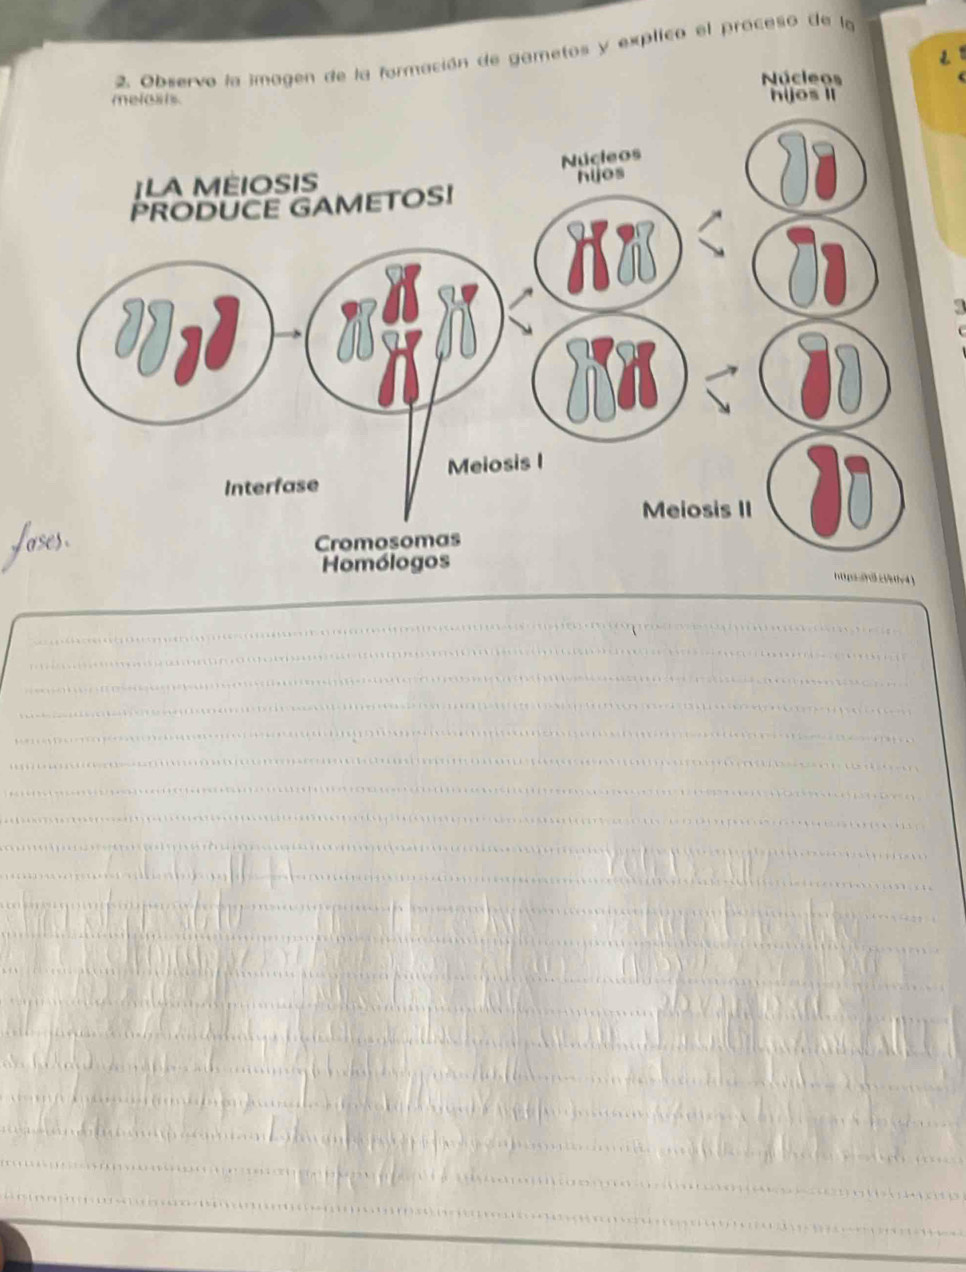 2. Observo la imagen de la formación de gametos y explico el proceso de la
meiosis.
¡LA MEIOSIS
PRODUCE GAMETOS!
Núcleos
hijos
Núcleos
hijos II
Interfase
Meiosis I
Meiosis II
Cromosomas
Homólogos
fases.